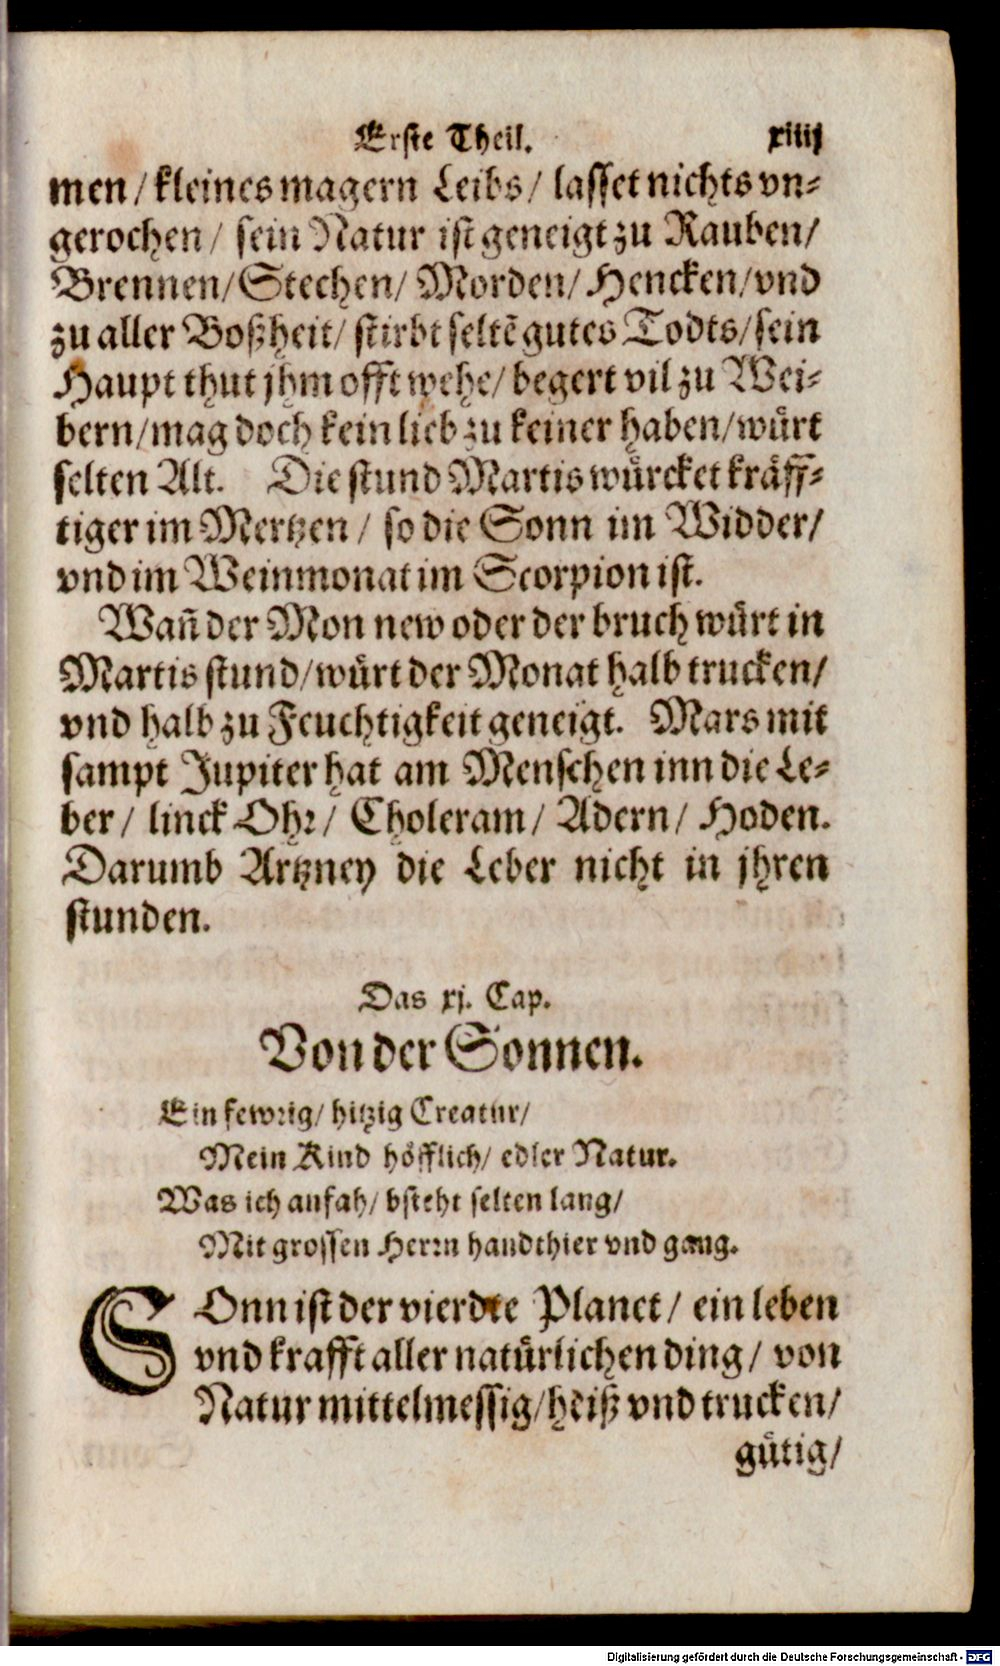 Erste Theil. xiiij
men/ kleines magern Leibs/ lasset nichts vn-
gerochen/ sein Natur ist geneigt zu Rauben/
Brennen/ Stechen/ Morden/ Hencken/ vnd
zu aller Boßheit/ stirbt seltẽ gutes Todts/ sein
Haupt thut jhm offt wehe/ begert vil zu Wei-
bern/ mag doch kein lieb zu keiner haben/ würt
selten Alt. Die stund Martis würcket kräff-
tiger im Mertzen / so die Sonn im Widder/
vnd im Weinmonat im Scorpion ist.
Wañ der Mon new oder der bruch würt in
Martis stund/ würt der Monat halb trucken/
vnd halb zu Feuchtigkeit geneigt. Mars mit
sampt Jupiter hat am Menschen inn die Le-
ber/ linck Ohr/ Choleram/ Adern/ Hoden.
Darumb Artzney die Leber nicht in jhren
stunden.
Das xj. Cap.
Von der Sonnen.
Ein fewrig/ hitzig Creatur/
Mein Kind höfflich/ edler Natur.
Was ich anfah/ bsteht selten lang/
Mit grossen Herrn handthier vnd gang.
SOnn ist der vierdte Planet/ ein leben
vnd krafft aller natürlichen ding/ von
Natur mittelmessig/ heiß vnd trucken/
gütig/
Digitalisierung gefördert durch die Deutsche Forschungsgemeinschaft - DFG